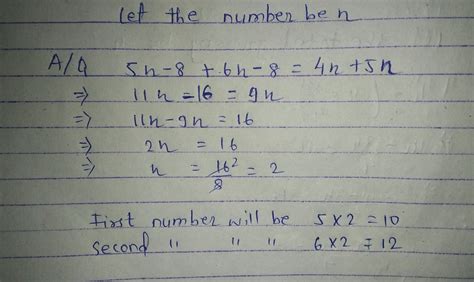 Let the number be n
A/Q 5n-8 + 6n-8 = 4n+5n
⇒ 11n -16 = 9n
⇒ 11n-9n = 16
⇒ 2n = 16
⇒ n = 16²/8 = 2
First number will be 5×2 = 10
second " " " 6×2 = 12